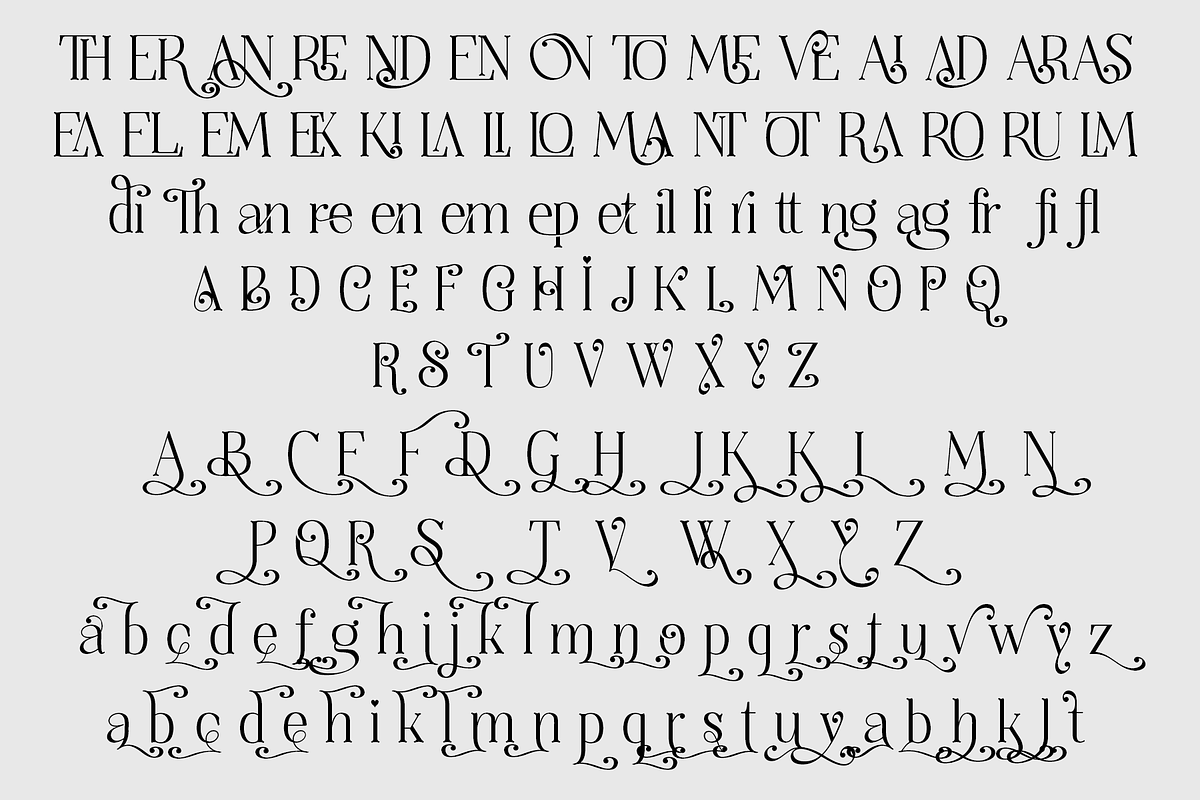 TH ER AN RE ND EN ON TO ME VE AI AD ARAS
EA EL EM EK KI LA LI LO MA NT OT RA RO RU LM
di Th an re en em ep et il li ri tt ng ag fr fi fl
A B D C E F G H I J K L M N O P Q
R S T U V W X Y Z
A B C E F D G H J K K L M N
P Q R S T V W X Y Z
a b c d e f g h i j k l m n o p q r s t u v w y z
a b c d e h i k l m n p q r s t u y a b h k l t